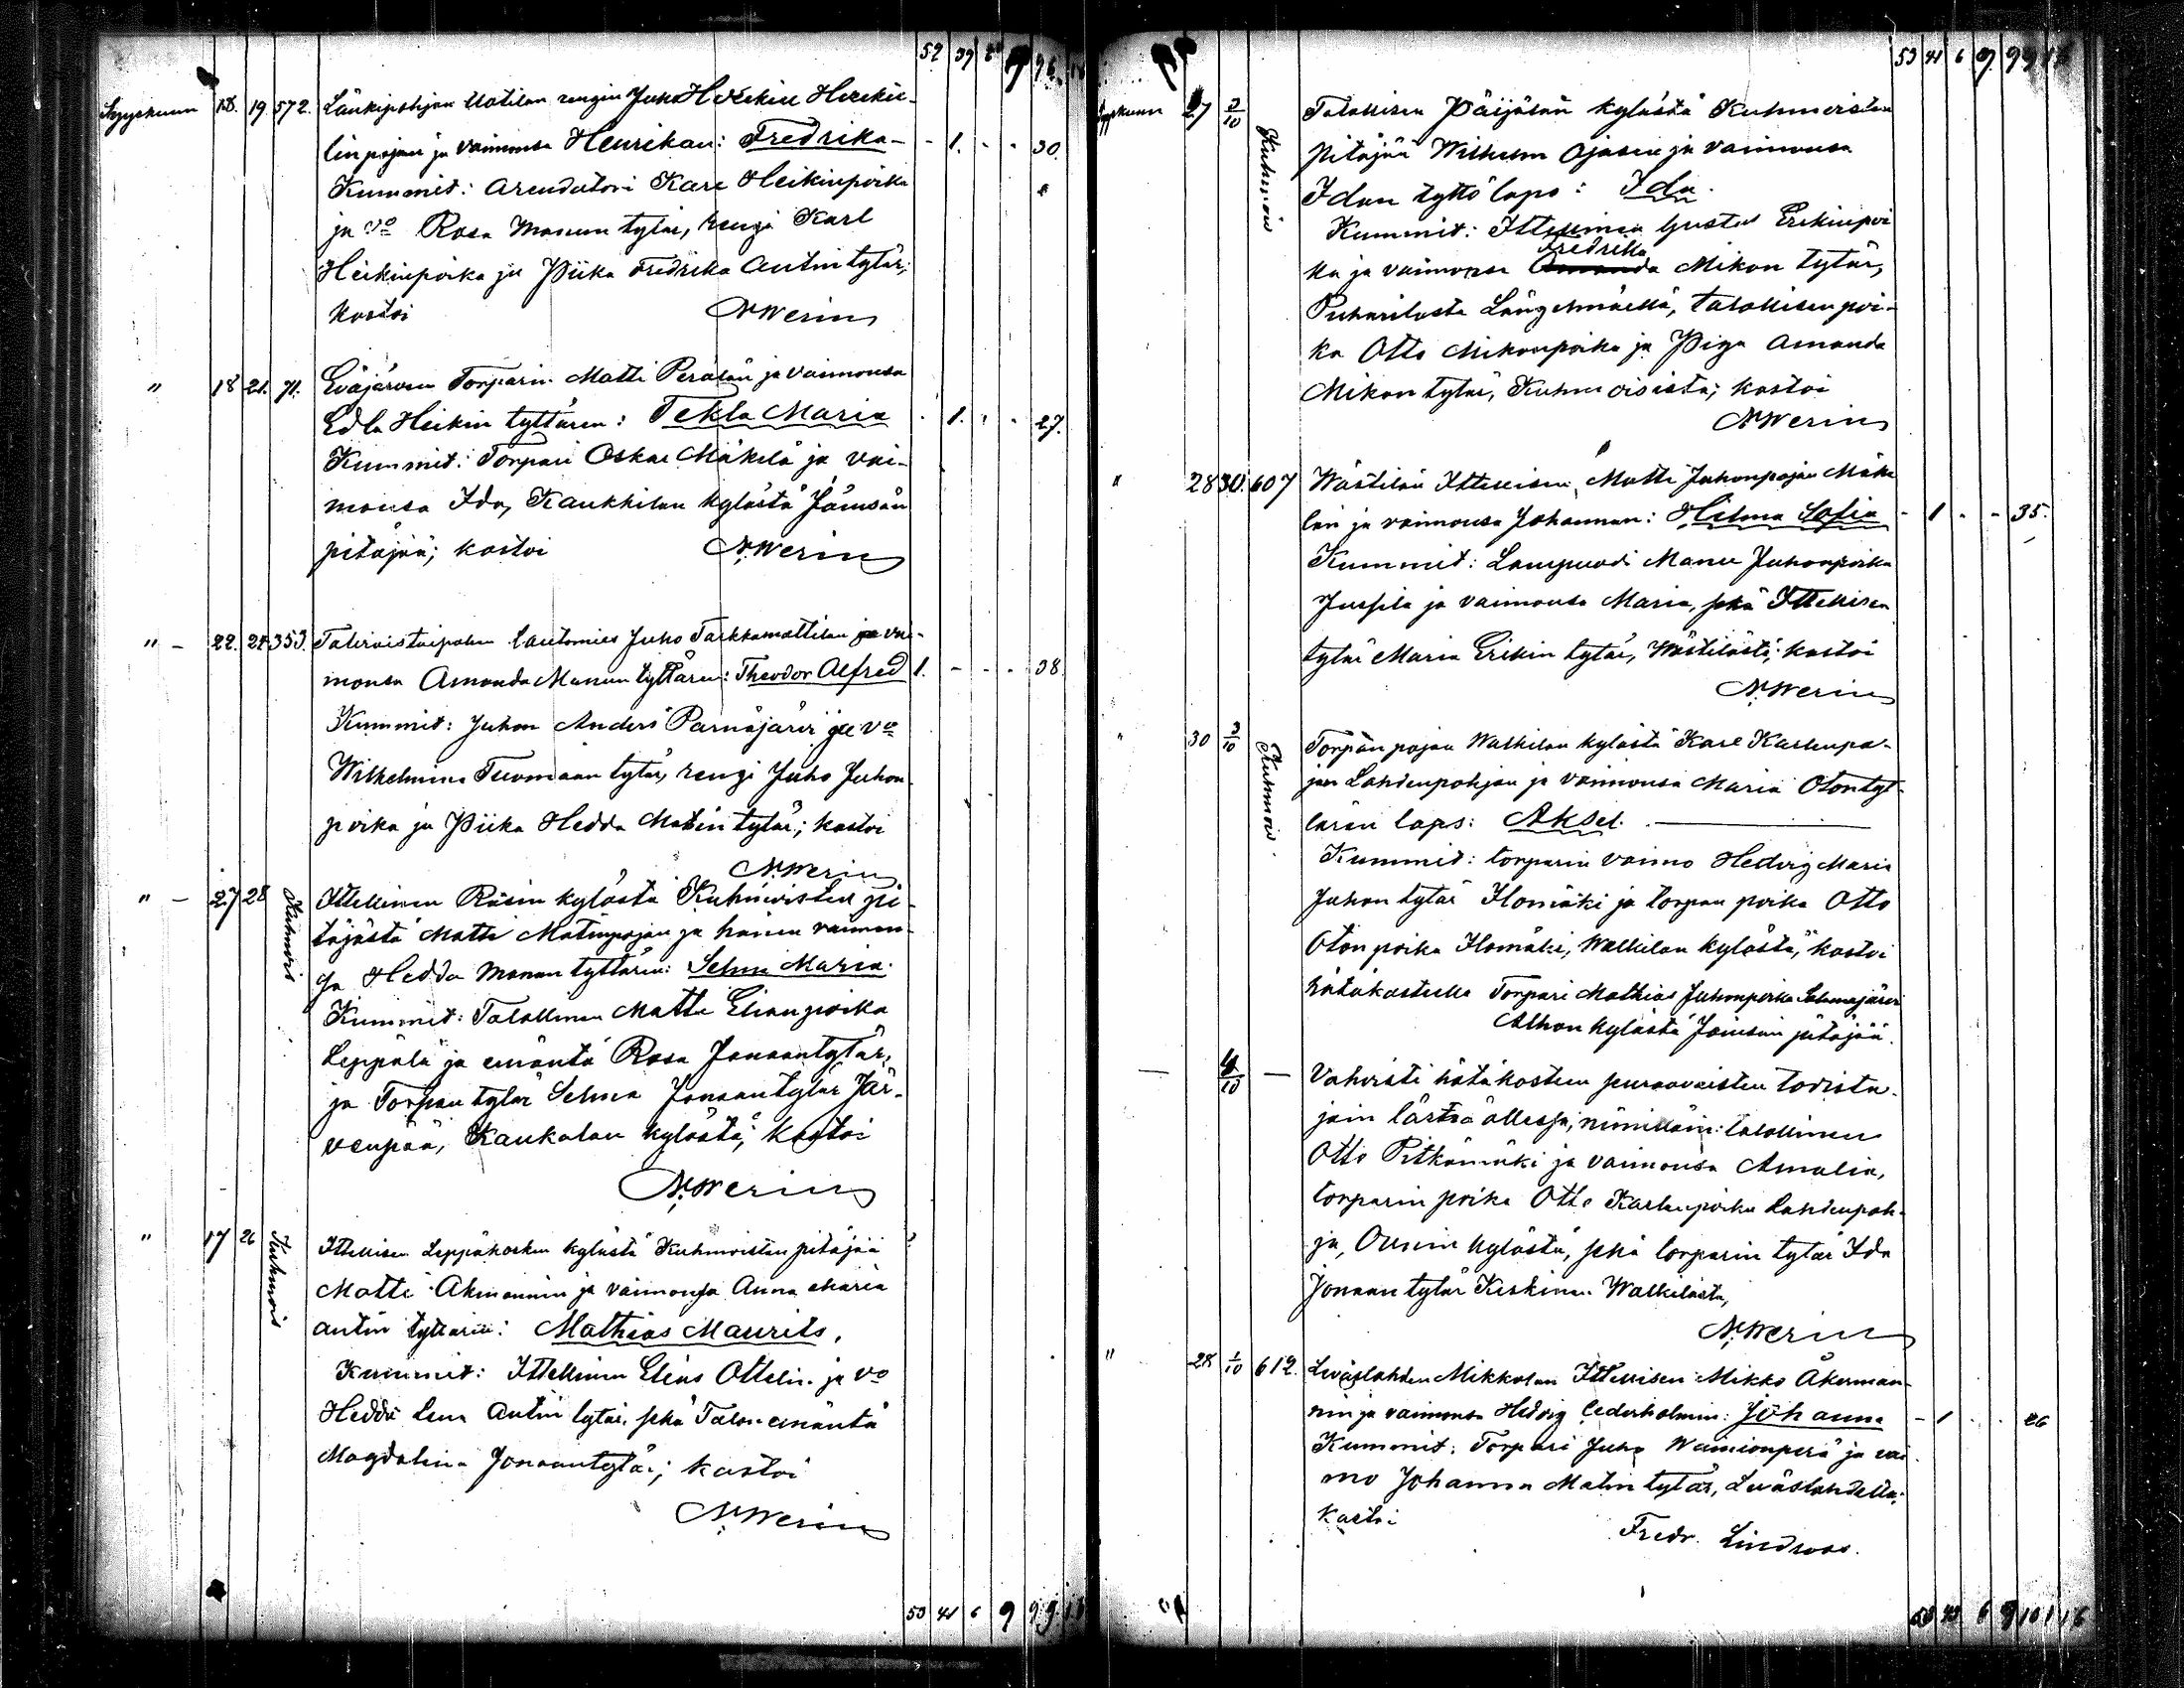 52 39 96
Syyskuun 18. 19. 572. Länkipohjan Uotilan rengin Juho Heikin Herckü-
lin pojan ja vaimonsa Henrikan: Fredrika - - 1. - - 30.
Kummit: Arendatori Karl Heikinpoika
ja vo Rosa Manuntytär, rengi Karl
Heikinpoika ja Piika Fredrika Antintytär;
kastoi NWerin
" 18 21. 71. Eväjärven Torparin Matti Perälän ja vaimonsa
Edla Heikin tyttären: Tekla Maria - 1. - - 27.
Kummit: Torpari Oskar Mäkelä ja vai-
monsa Ida, Kaukkilan kylästä Jämsän
pitäjää; kastoi N.Werin
" - 22. 24 353. Talviaistaipaleen lautamies Juho Tarkkamattilan ja vai-
monsa Amanda Manun tyttären: Theodor Alfred 1. - - - 38.
Kummit: Juhon Anders Parnajärvi ja vo
Wilhelmina Tuomaan tytär, rengi Juho Juhon
poika ja Piika Hedda Matin tytär; kastoi
N.Werin
" - 27 28 Kuhmois Ittellinen Räsin kylästä Kuhmoisten pi-
täjästä Matti Matinpojan ja hänen vaimon-
sa Hedda Manun tyttären: Selma Maria.
Kummit: Talollinen Matti Elianpoika
Leppälä ja emäntä Rosa Jonaantytär,
ja Torpan tytär Selma Jonaantytär Jär-
venpää, Kaukolan kylästä; kastoi
N.Werin
" 17 26 Kuhmois Ittellisen Leppäkosken kylästä Kuhmoisten pitäjää
Matti Akmannin ja vaimonsa Anna Maria
Antin tyttären: Mathias Maurits,
Kummit: Ittellinen Elias Ottelin ja vo
Hedda Lena Antin tytär, sekä Talon emäntä
Magdalena Jonaantytär; kastoi
N.Werin
53 41 6 9 99 16
53 41 6 9 99 16
Syyskuun 27 3/10 Kuhmois Talollisen Päijälän kylästä Kuhmoisten
pitäjää Wilhelm Ojasen ja vaimonsa
Idan tyttö laps: Ida.
Kummit: Ittellinen Gustaf Erikinpoi
Fredrika
ka ja vaimonsa Amanda Mikon tytär,
Puharilasta Längelmäellä, talollisen poi-
ka Otto Mikonpoika ja Piga Amanda
Mikon tytär, Kuhmoisista; kastoi
NWerin
" 28 30. 607 Wästilän Ittellisen Matti Juhonpojan Mäke
län ja vaimonsa Johannan: Hilma Sofia - 1 - - 35.
Kummit: Lampuodi Manu Juhonpoika
Jussila ja vaimonsa Maria, sekä Ittellisen
tytär Maria Erikin tytär, Wästilästä; kastoi
N.Werin
" 30 3/10 Kuhmois. Torpan pojan Walkilan kylästä Karl Karlenpo-
jan Lahdenpohjan ja vaimonsa Maria Otontyt-
tären laps: Aksel.
Kummit: torparin vaimo Hedvig Maria
Juhon tytär Ilomäki ja torpan poika Otto
Oton poika Ilomäki, Walkilan kylästä, kastoi
hätäkasteella Torpari Mathias Juhonpoika Salmejärvi
Alhon kylästä Jämsän pitäjää.
— 4/10 — Vahvisti hätäkasteen seuraavaisten todista-
jain läsnä ollessa, nimittäin: talollinen
Otto Pitkämäki ja vaimonsa Amalia,
torparin poika Otto Karlenpoika Lahdenpoh-
ja, Ouninkylästä, sekä torparin tytär Ida
Jonaan tytär Keskinen Walkilasta,
N.Werin
" 28 1/10 612. Leväslahden Mikkolan Ittellisen Mikko Åkerman-
nin ja vaimonsa Hedvig Cederholmin: Johanna - 1 - - 26
Kummit: Torpari Juho Wainionperä ja vai-
mo Johanna Matin tytär, Leväslahdella;
kastoi Fredr. Lindroos.
53 43 6 9 101 16